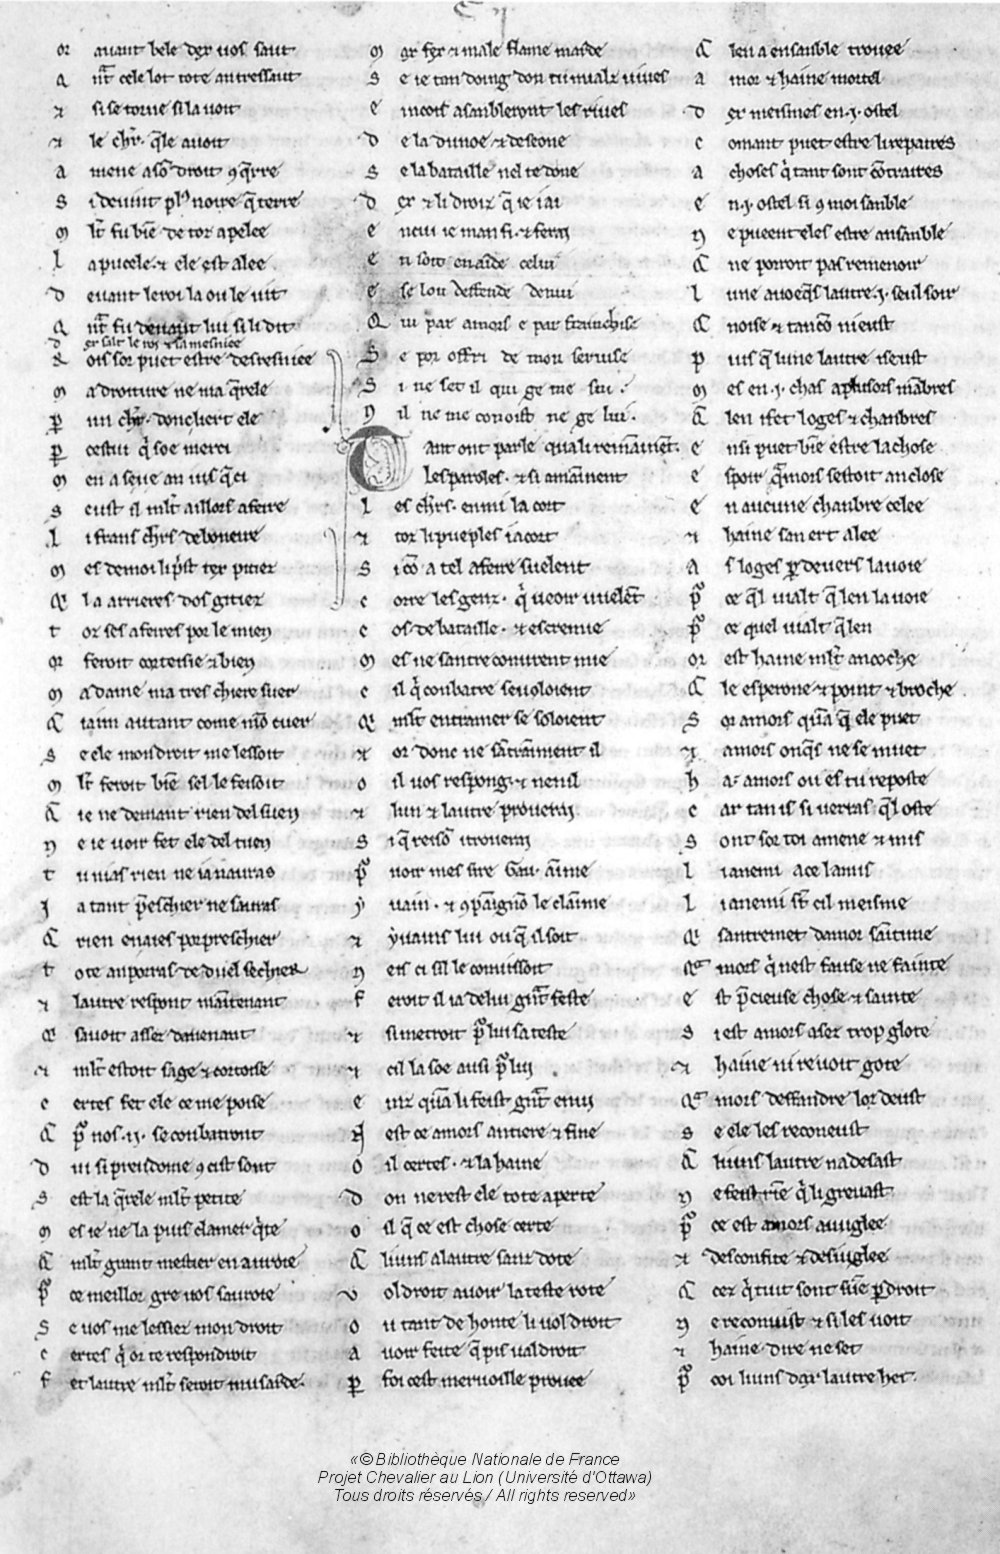 or auant bele dex vos saut
Q nt cele lot tote an tressaut
⁊ si se torne si la uoit
⁊ le chr̄. q̄le auoit
a mene a sō droit ꝯq̄rre
s i deuint pl' noire q̄ terre
m lt̄ fu biē de toz apelee
l a pucele. ⁊ ele est alee
d euant le roi la ou le vit
Q nt̄ fu deuant lui si li dit
d ex salt le roi ⁊ sa mesniee
R ois sor puet estre desresniee
m a droiture ne ma q̄rele
ꝑ un chr̄. donc liert ele
ꝑ cestui q̄ soe merci
m en a seue an iusq̄ ci
s eust il mlt̄ aillors a feire
l i frans chr̄s debonere
m es de moi li p̄st tex pitiez
Q l a arrieres dos gitiez
t oz ses afeires por le mien
or feroit corteisie ⁊ bien
m a dame ma tres chiere suer
Q iaim autant come mō cuer
s e ele mon droit me lessoit
m lt̄ feroit biē sel le feisoit
Q ie ne demant rien del suen
n e ie voir fet ele del tuen
t u nias rien ne ia nauras
J a tant p̄eschier ne sauras
Q rien en aies por preschier
t ote an porras de duel sechier
⁊ lautre respont maītenant
Q sauoit assez dauenant
⁊ mlt̄ estoit sage ⁊ cortoise
c ertes fet ele ce me poise
Q p̄ nos .ii. se conbatront
d ui si preudome ꝯ cist sont
s est la q̄rele mlt̄ petite
m es ie ne la puis clamer q̄te
Q mlt̄ grant mestier en auroie
p̄ ce meillor gre vos sauroie
S e vos me lessiez mon droit
c ertes q̄ or te respondroit
f et lautre mlt̄ seroit musarde.
m ax fex ⁊ male flame marde
s e ie ten doing don tu mialz viues
e incois asanbleront les riues
d e la dunoe ⁊ de seone
s e la bataille nel te done
d ex ⁊ li droiz q̄ ie i ai
e n cui ie man fi. ⁊ ferai
e n soit en aide celui
e se lou deffende denui
Q ui par amors e par franchise
S e por offri de mon seruise
S i ne set il qui ge me sui.
N il ne me conoist ne ge lui.
T ant ont parle qua li remaīnēt
Les paroles. ⁊ si amainent
l es chr̄s. enmi la cort
⁊ toz li pueples i acort
s i cō a tel afeire suelent
c orre les genz. q̄ veoir vuelēt
c os de bataille. ⁊ escremie
m es ne santre conurent mie
c il q̄ conbatre se uoloient
Q mlt̄ entramer se soloient
⁊ or donc ne sātraiment il
o il vos respong. ⁊ nenil
⁊ lun ⁊ lautre proverai
S i q̄ reisō i troverai
p̄ voir mes sire Gau. aīme
y uain. ⁊ ꝯpaīgnō le claīme
⁊ yuains lui ou q̄ il soit
n eis ci sil le conuissoit
f eroit il ia de lui gnt̄ feste
⁊ si metroit p̄ lui sa teste
⁊ cil la soe ausi p̄ lui
e inz quā li feist gnt̄ enui
N est ce amors antiere ⁊ fine
o il certes. ⁊ la haine
d on ne rest ele tote aperte
o il q̄ ce est chose certe
Q li uns a lautre sanz dote
v oldroit auoir la teste rote
o u tant de honte li voldroit
a voir feite q̄ pis valdroit
ꝑ foi cest mervoille provee
Q len a ensanble trovee
a mor ⁊ haine mortel
d ex meismes en .i. ostel
c omant puet estre li repaires
a choses q̄ tant sont cōtraires
e n .i. ostel si ꝯ moi sanble
n e pueent eles estre ansanble
Q ne porroit pas remenoir
l une auoeq̄s lautre .i. seul soir
Q noise ⁊ tancō ni eust
p uis q̄ lune lautre i seust
m es en .i. chas a plusors mābres
Q len i fet loges ⁊ chanbres
e nsi puet biē estre la chose
e spoir q̄mors sestoit anclose
e n aucune chanbre celee
⁊ haine san ert alee
a s loges ꝑ deuers la voie
p̄ ce q̄l vialt q̄ len la voie
p̄ ce quel vialt q̄ len
or est haine mlt̄ an coche
Q le esperone ⁊ point ⁊ broche
S or amors quā q̄ ele puet
⁊ amors onq̄s ne se muet
h a. amors ou es tu reposte
c ar tan is si verras q̄l oste
s ont sor toi amene ⁊ mis
l i anemi a ce lamis
l i anemi st̄ cil meisme
Q santreimet damor saītime
Q mors q̄ nest fause ne fainte
e st p̄cieuse chose ⁊ sainte
S i est amors asez trop glote
⁊ haine ni revoit gote
Q mors deffandre lor deust
s e ele les reconeust
Q li uns lautre nadesast
n e feist riē q̄ li grevast
p̄ ce est amors auuglee
⁊ desconfite ⁊ desiuglee
Q cez q̄ tuit sont suen ꝑ droit
n e reconuist ⁊ si les voit
⁊ haine dire ne set
p̄ coi li uns dax lautre het.
«© Bibliothèque Nationale de France
Projet Chevalier au Lion (Université d'Ottawa)
Tous droits réservés / All rights reserved»